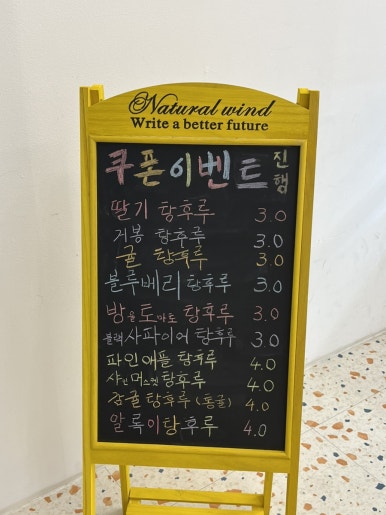 Natural wind
Write a better future
쿠폰이벤트 진행
딸기 탕후루 3.0
거봉 탕후루 3.0
귤 탕후루 3.0
블루베리 탕후루 3.0
방울토마토 탕후루 3.0
블랙사파이어 탕후루 3.0
파인애플 탕후루 4.0
샤인머스켓 탕후루 4.0
감귤 탕후루 (통귤) 4.0
알록이탕후루 4.0